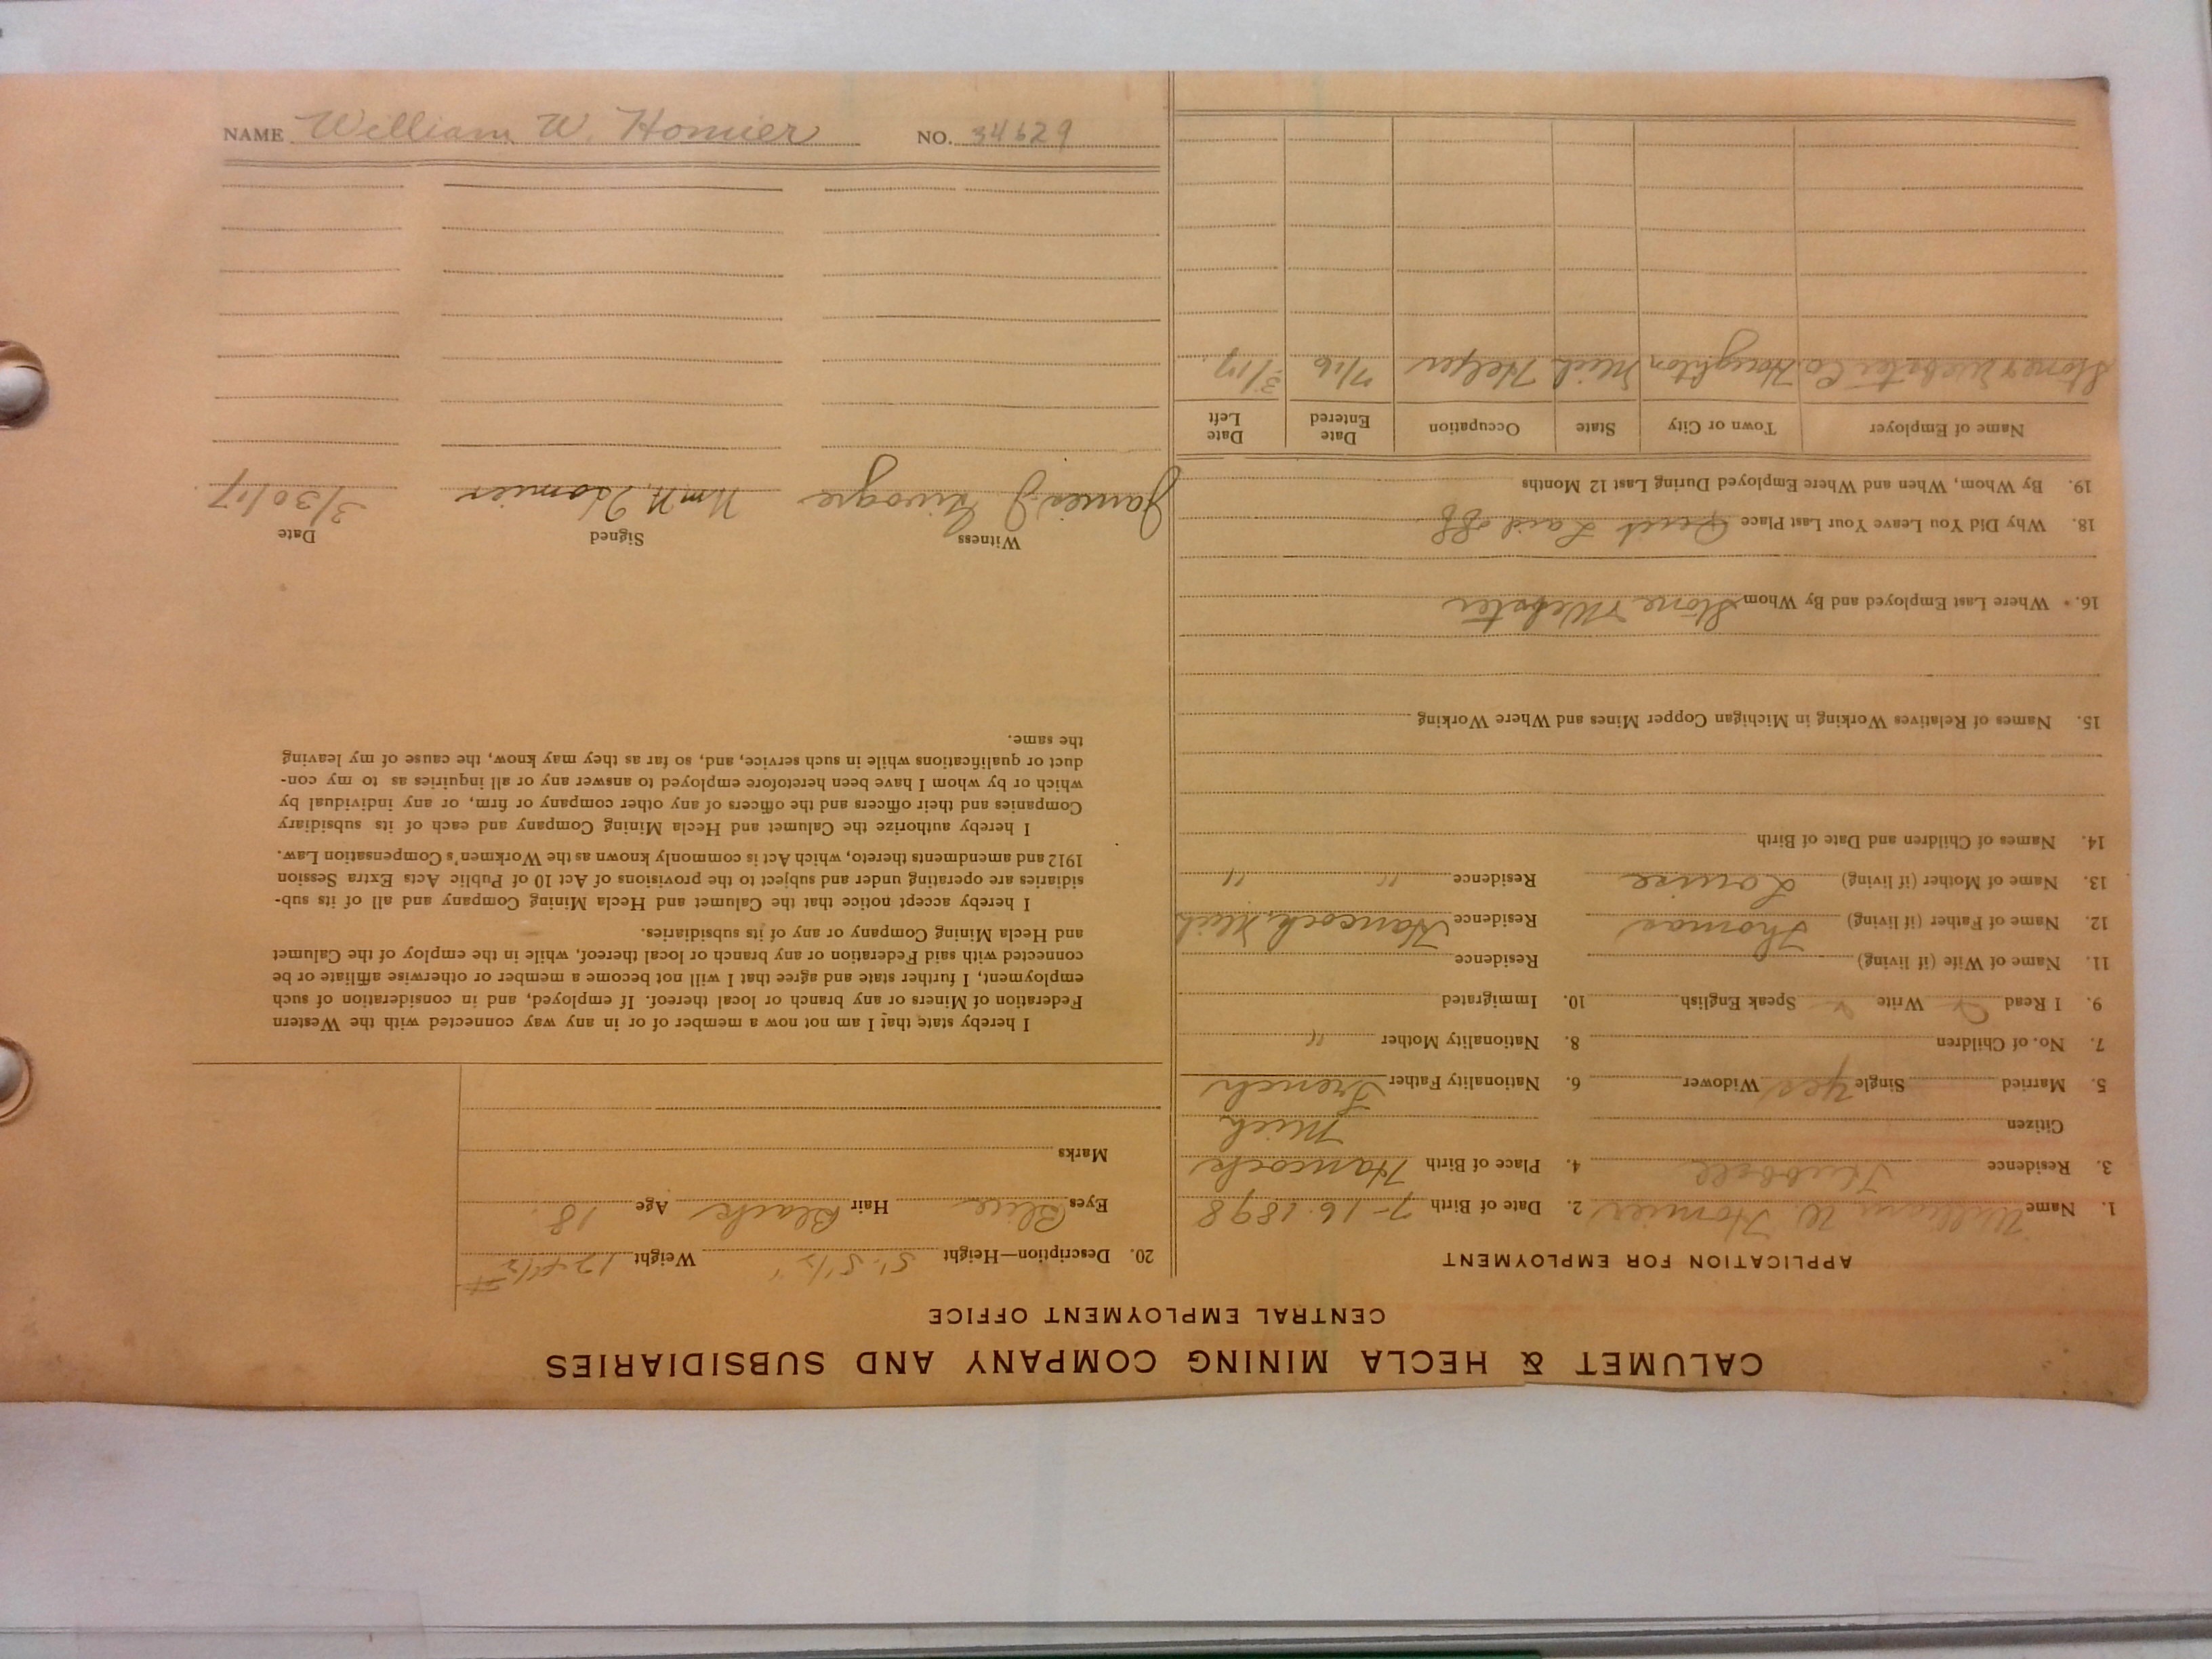 CALUMET & HECLA MINING COMPANY AND SUBSIDIARIES
CENTRAL EMPLOYMENT OFFICE
APPLICATION FOR EMPLOYMENT
1. Name William W Homier 2. Date of Birth 7-16-1898
3. Residence Hubbell 4. Place of Birth Hancock
Citizen Mich
5. Married Single yes Widower 6. Nationality Father French
7. No. of Children 8. Nationality Mother "
9. I Read Write Speak English 10. Immigrated
11. Name of Wife (if living) Residence
12. Name of Father (if living) Thomas Residence Hancock, Mich
13. Name of Mother (if living) Louise Residence " "
14. Names of Children and Date of Birth
15. Names of Relatives Working in Michigan Copper Mines and Where Working
16. Where Last Employed and By Whom Stone & Webster
18. Why Did You Leave Your Last Place Laid off
19. By Whom, When and Where Employed During Last 12 Months
Name of Employer Town or City State Occupation Date Entered Date Left
Stone & Webster Co. Houghton Mich Helper 7/16 3/17
20. Description—Height 5'-5 1/2" Weight 124 1/2 #
Eyes Blue Hair Black Age 18
Marks
I hereby state that I am not now a member of or in any way connected with the Western
Federation of Miners or any branch or local thereof. If employed, and in consideration of such
employment, I further state and agree that I will not become a member or otherwise affiliate or be
connected with said Federation or any branch or local thereof, while in the employ of the Calumet
and Hecla Mining Company or any of its subsidiaries.
I hereby accept notice that the Calumet and Hecla Mining Company and all of its sub-
sidiaries are operating under and subject to the provisions of Act 10 of Public Acts Extra Session
1912 and amendments thereto, which Act is commonly known as the Workmen's Compensation Law.
I hereby authorize the Calumet and Hecla Mining Company and each of its subsidiary
Companies and their officers and the officers of any other company or firm, or any individual by
which or by whom I have been heretofore employed to answer any or all inquiries as to my con-
duct or qualifications while in such service, and, so far as they may know, the cause of my leaving
the same.
Witness Signed Date
James J. Wm. Homier 3/30/17
NAME William W. Homier NO. 34629